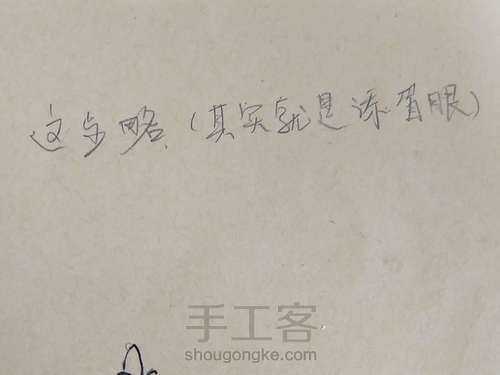 这步略(其实就是添眉眼)
手工客
shougongke.com